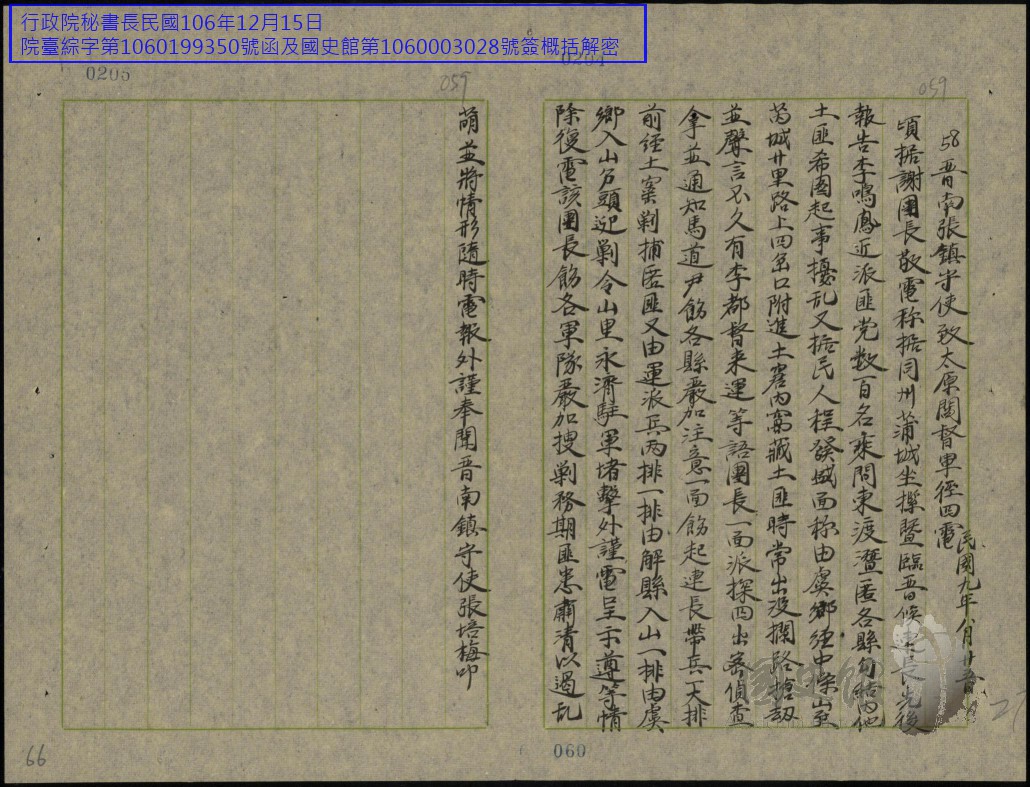 行政院秘書長民國106年12月15日
院臺綜字第1060199350號函及國史館第1060003028號簽概括解密
0205
0204
059
059
58晋南張鎮守使致太原閻督軍徑四電
民國九年八月廿五日
頃据謝團長敬電称据同州蒲城坐探暨臨晋候連長先後
報告李鳴鳳近派匪党数百名乘間東渡潛匿各縣勾結內地
土匪希图起事擾乱又据民人程發盛面称由虞鄉經中條山至
芮城廿里路上四岔口附進土窰內窩藏土匪時常出沒攔路搶刼
並聲言不久有李都督来運等語團長一面派探四出密偵查
拿並通知馬道尹飭各縣嚴加注意一面飭起連長帶兵一大排
前経土窰剿捕匿匪又由運派兵两排一排由解縣入山一排由虞
鄉入山分頭迎剿令山里永濟駐軍堵擊外謹電呈示遵等情
除復電該團長飭各軍隊嚴加搜剿務期匪患肅清以遏乱
萌並將情形隨時電報外謹奉聞晋南鎮守使張培梅叩
國史館
66
060